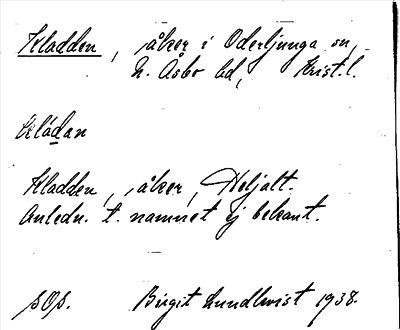 Kladden, åker i Oderljunga sn,
N. Åsbo hd, Krist. l.
klådan
Kladden, åker, Heljalt.
Anledn. t. namnet ej bekant.
Birgit Lundkvist 1938.